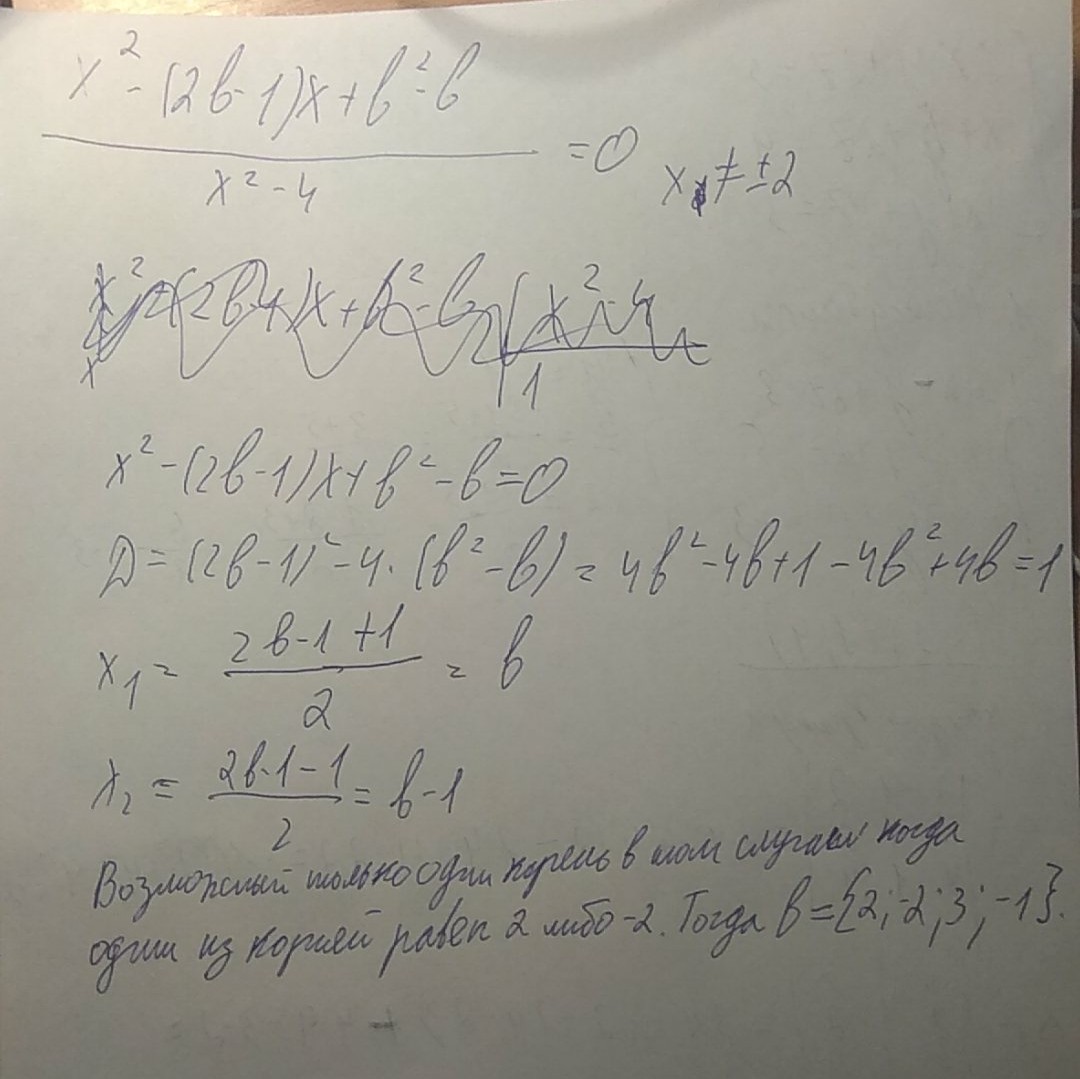 x² - (2b-1)x + b² - b
x² - 4
= 0 x ≠ ±2
x² - (2b-1)x + b² - b x² - 4
1
x² - (2b-1)x + b² - b = 0
D = (2b-1)² - 4·(b² - b) = 4b² - 4b + 1 - 4b² + 4b = 1
x₁ = (2b-1+1)/2 = b
x₂ = (2b-1-1)/2 = b-1
Возможный только один корень в том случаи когда
один из корней равен 2 либо -2. Тогда b = {2; -2; 3; -1}.